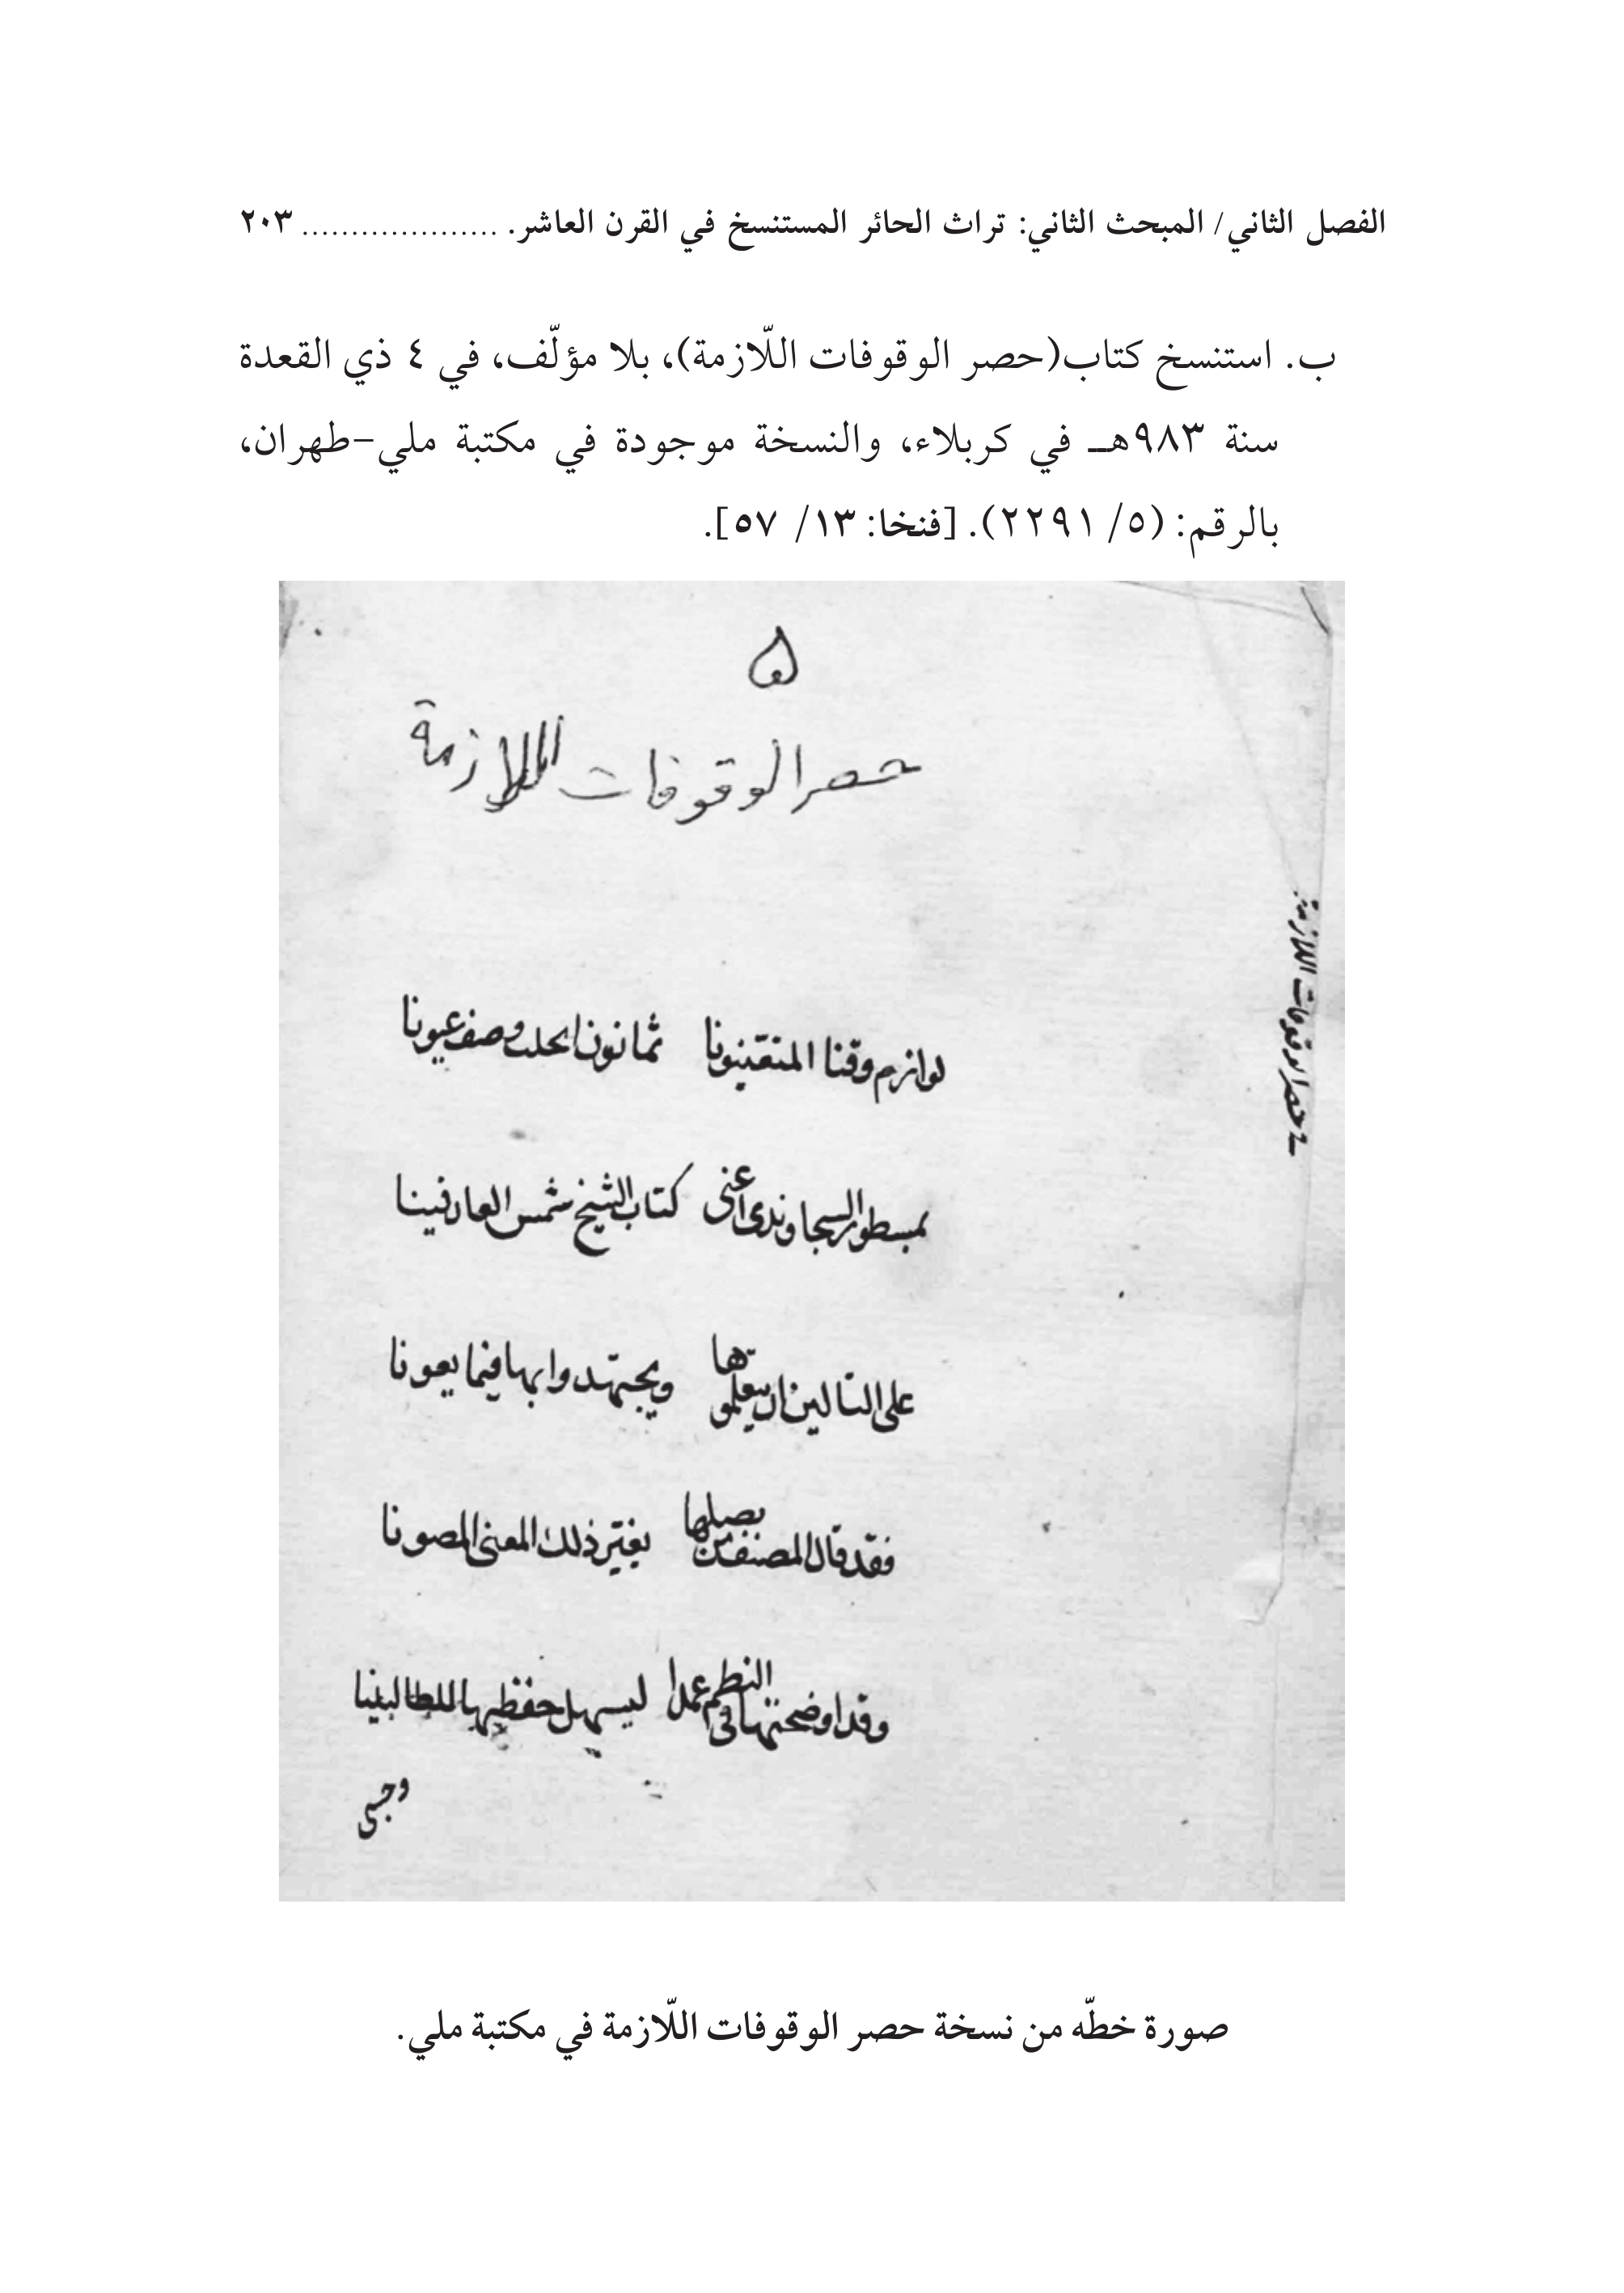 الفصل الثاني/ المبحث الثاني: تراث الحائر المستنسخ في القرن العاشر. .................... ٢٠٣
ب. استنسخ كتاب(حصر الوقوفات اللّازمة)، بلا مؤلّف، في ٤ ذي القعدة
سنة ٩٨٣هـ في كربلاء، والنسخة موجودة في مكتبة ملي-طهران،
بالرقم: (٥/ ٢٢٩١). [فنخا: ١٣/ ٥٧].
۵
حصر الوقوفات اللازمة
حصر الوقوفات اللازمة
لوازم وقفنا المتقينونا ثمانون وصف عيونا
بمسطور السجاوندى اعنى كتاب الشيخ شمس العارفينا
على التالين ان يتعلموها ويجتهدوا بها فيما يعونا
فقد قال المصنف من يصلها يغير ذلك المعنى المصونا
وقد اوضحتها فى النظم عمدا ليسهل حفظها للطالبينا
صورة خطّه من نسخة حصر الوقوفات اللّازمة في مكتبة ملي.